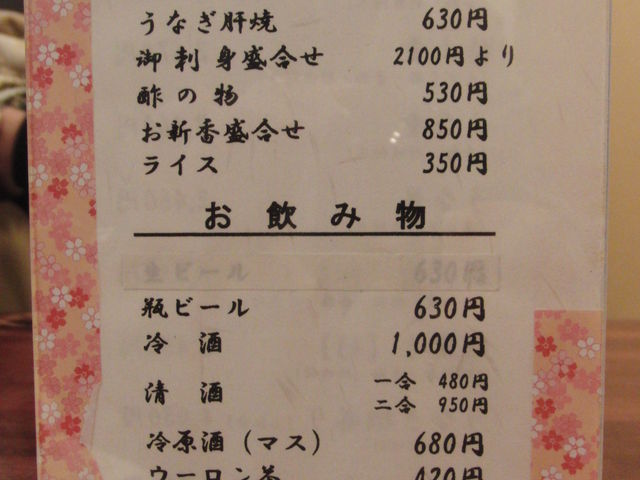 うなぎ肝焼 630円
御刺身盛合せ 2100円より
酢の物 530円
お新香盛合せ 850円
ライス 350円
お飲み物
生ビール 630円
瓶ビール 630円
冷酒 1,000円
清酒 一合 480円
二合 950円
冷原酒(マス) 680円
ウーロン茶 420円